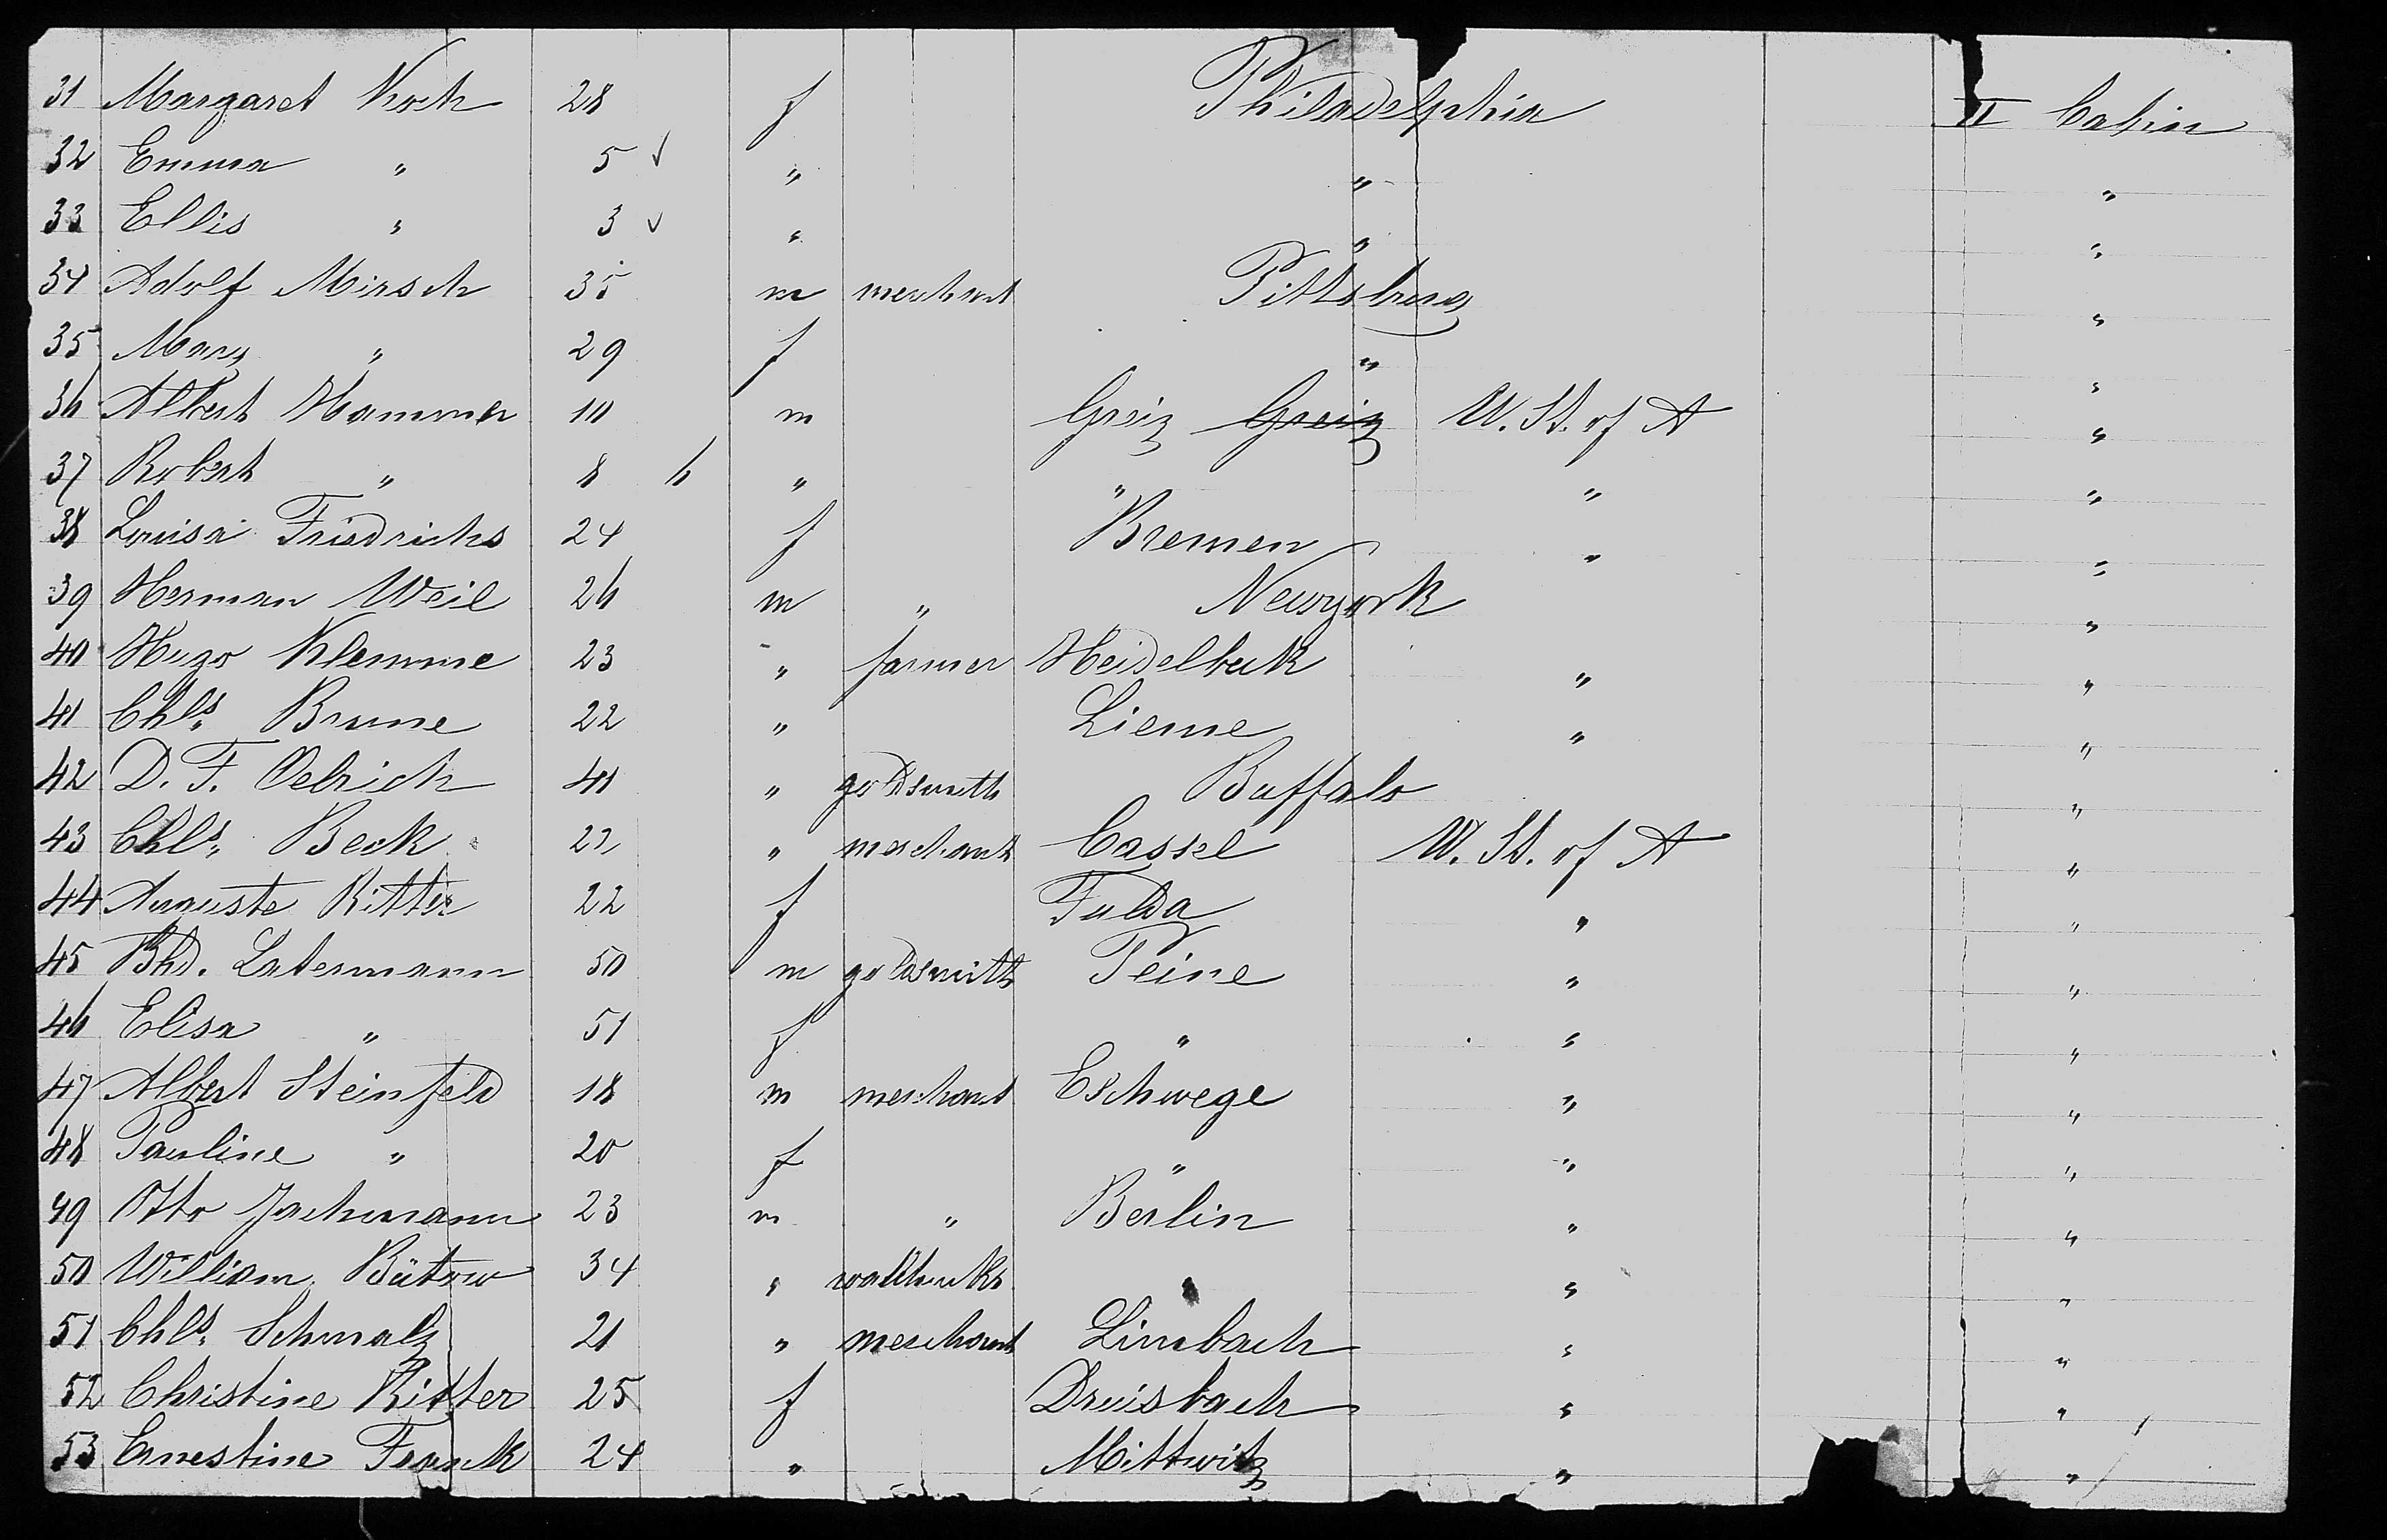 31 Margaret Koch 28 f Philadelphia II Cabin
32 Emma " 5 ✓ " " "
33 Ellis " 3 ✓ " " "
34 Adolf Mirsch 35 m merchant Pittsburg "
35 Mary " 29 f " "
36 Albert Hammer 10 m Greiz Greiz U. St. of A "
37 Robert " 8 6 " " " "
38 Louisa Friedrichs 24 f Bremen " "
39 Herman Weil 26 m " Newyork "
40 Hugo Klemme 23 " farmer Heidelbeck " "
41 Chls. Brune 22 " Lieme " "
42 D. F. Oelrich 41 " goldsmith Buffalo "
43 Chls. Beck 22 " merchant Cassel U. St. of A "
44 Auguste Ritter 22 f Fulda " "
45 Bhd. Latermann 50 m goldsmith Peine " "
46 Elisa " 51 f " " "
47 Albert Steinfeld 18 m merchant Eschwege " "
48 Pauline " 20 f " " "
49 Otto Jachmann 23 m " Berlin " "
50 William Bütow 34 " " " "
51 Chls. Schmalz 21 " merchant Limbach " "
52 Christine Ritter 25 f Dreisbach " "
53 Ernestine Frank 24 " Mittwitz " "